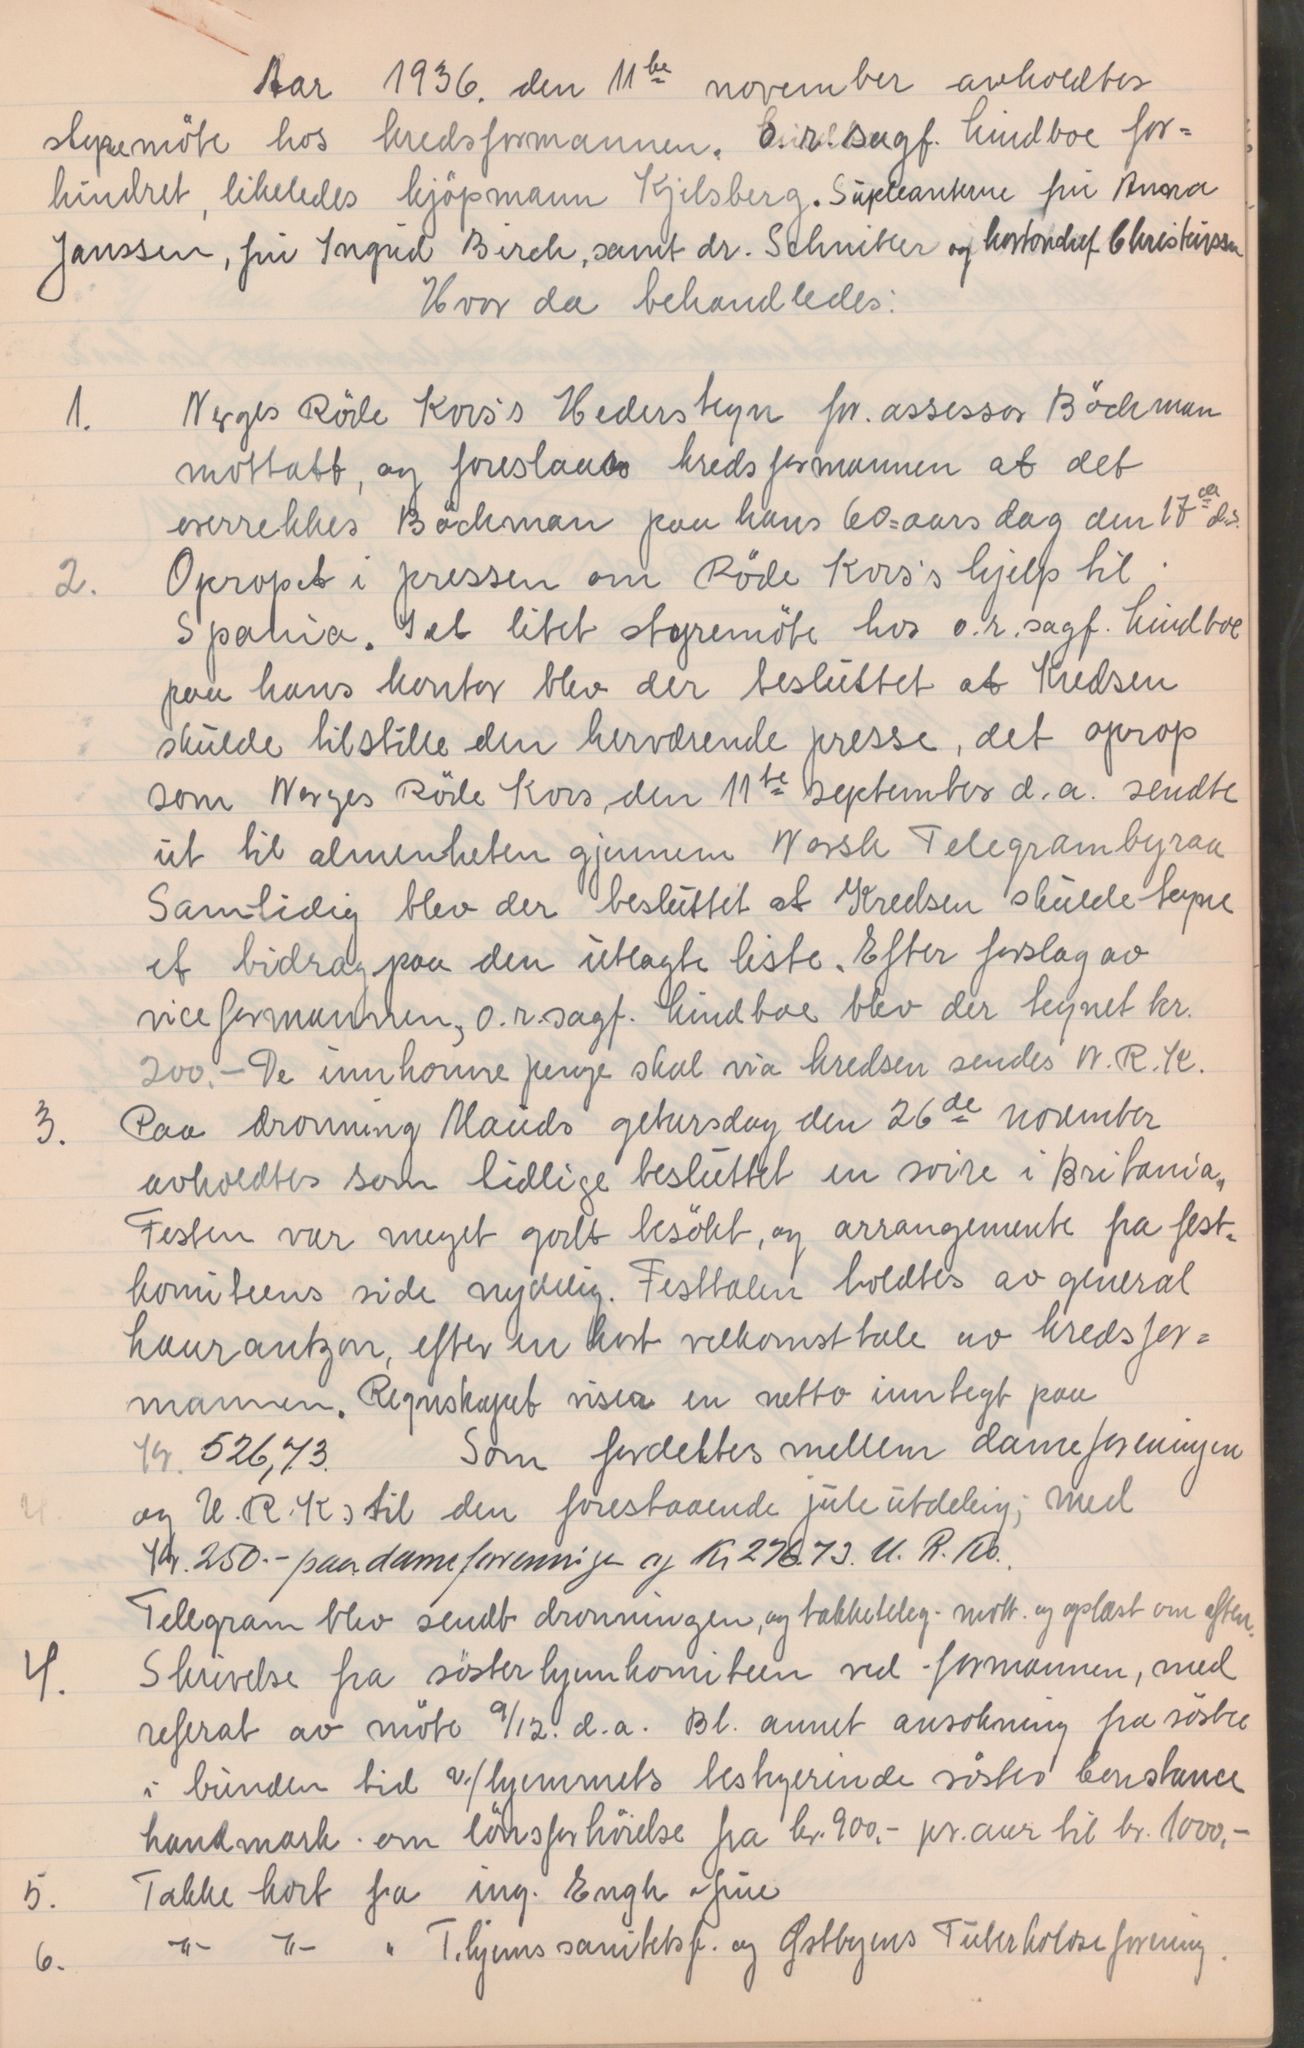 Aar 1936. den 11te november avholdtes
styremöte hos kredsformannen. O.r.sagf. Lindboe for=
hindret, likeledes kjöpmann Kjelsberg. Supleanterne fru Anna
Janssen, fru Ingrid Birch, samt dr. Schnitler og kontorchef Christiansen
Hvor da behandledes:
1. Norges Röde Kors's Hederstegn for assessor Böckman
mottatt, og foreslaaes kredsformannen at det
overrekkes Böckman paa hans 60=aars dag den 17de d.s.
2. Opropet i pressen om Röde Kors's hjelp til
Spania. I et litet styremöte hos o.r.sagf. Lindboe
paa hans kontor blev der besluttet at Kredsen
skulde tilstille den herværende presse, det oprop
som Norges Röde Kors, den 11te september d.a. sendte
ut til almenheten gjennem Norsk Telegrambyraa
Samtidig blev der besluttet at Kredsen skulde tegne
et bidrag paa den utlagte liste. Efter forslag av
viceformannen, o.r.sagf. Lindboe blev der tegnet kr.
200.- De innkomne penge skal via kredsen sendes N.R.K.
3. Paa dronning Mauds gebursdag den 26de november
avholdtes som tidlige besluttet en soire i Britania,,
Festen var meget godt besökt, og arrangemente fra fest=
komiteens side nydelig. Festtalen holdtes av general
Laurantzon, efter en kort velkomsttale av kredsfor=
mannen. Regnskapet viser en netto inntegt paa
Kr. 526,73. Som fordeltes mellem dameforeningen
og U.R.K. til den forestaaende juleutdeling; med
Kr. 250.- paa dameforeninge og Kr 276.73. U.R.K.
Telegram blev sendt dronningen, og takketeleg. mott. og oplæst om aften.
4. Skrivelse fra sösterhjemkomiteen ved formannen, med
referat av möte 9/12. d.a. Bl. annet ansökning fra söstre
i bunden tid v/hjemmets bestyerinde söster Constance
Landmark om lönsforhöielse fra kr. 900,- pr. aar til kr. 1000,-
5. Takke kort fra ing. Engh og frue
6. -"- -"- " T.hjems sanitetsf. og Østbyens Tuberkoloseforening.